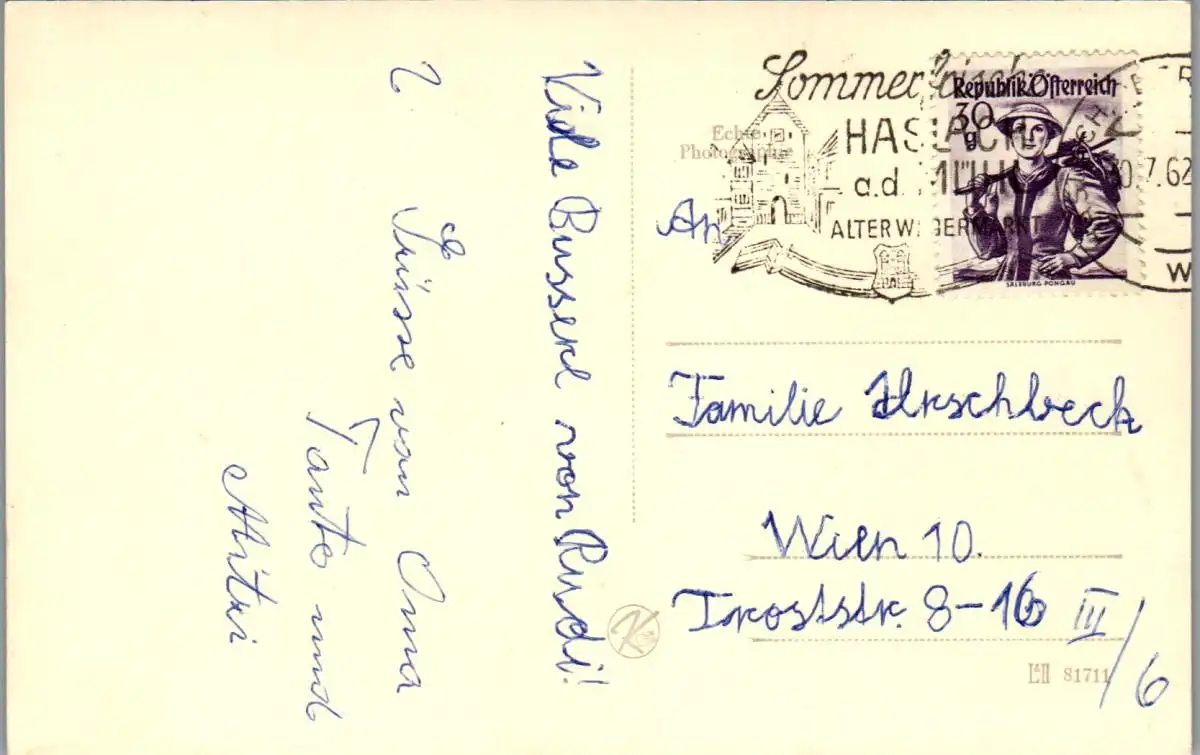 Viele Busserl von Rudi!
Grüsse von Oma
Tante und
Mitzi
Echte
Photographie
Sommerfrische
HASLACH
a.d. MÜHL
ALTER WEBERMARKT
Republik Österreich
30
g
SALZBURG-PONGAU
30.7.62
An
Familie
Wien 10.
Troststr. 8-16 III/6
L&H 81711
K